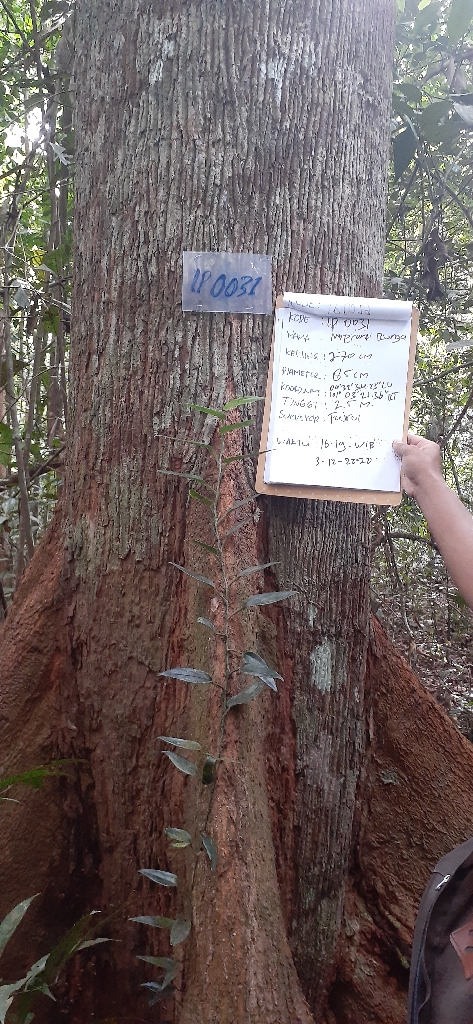 IP 0031
KODE : IP 0031
NAMA : Meranti Bunga
KELILING : 270 cm
DIAMETER : 85 cm
KOORDINAT :
TINGGI : 25 M.
SURVEYOR :
WAKTU : 16.19 WIB
3-12-2020